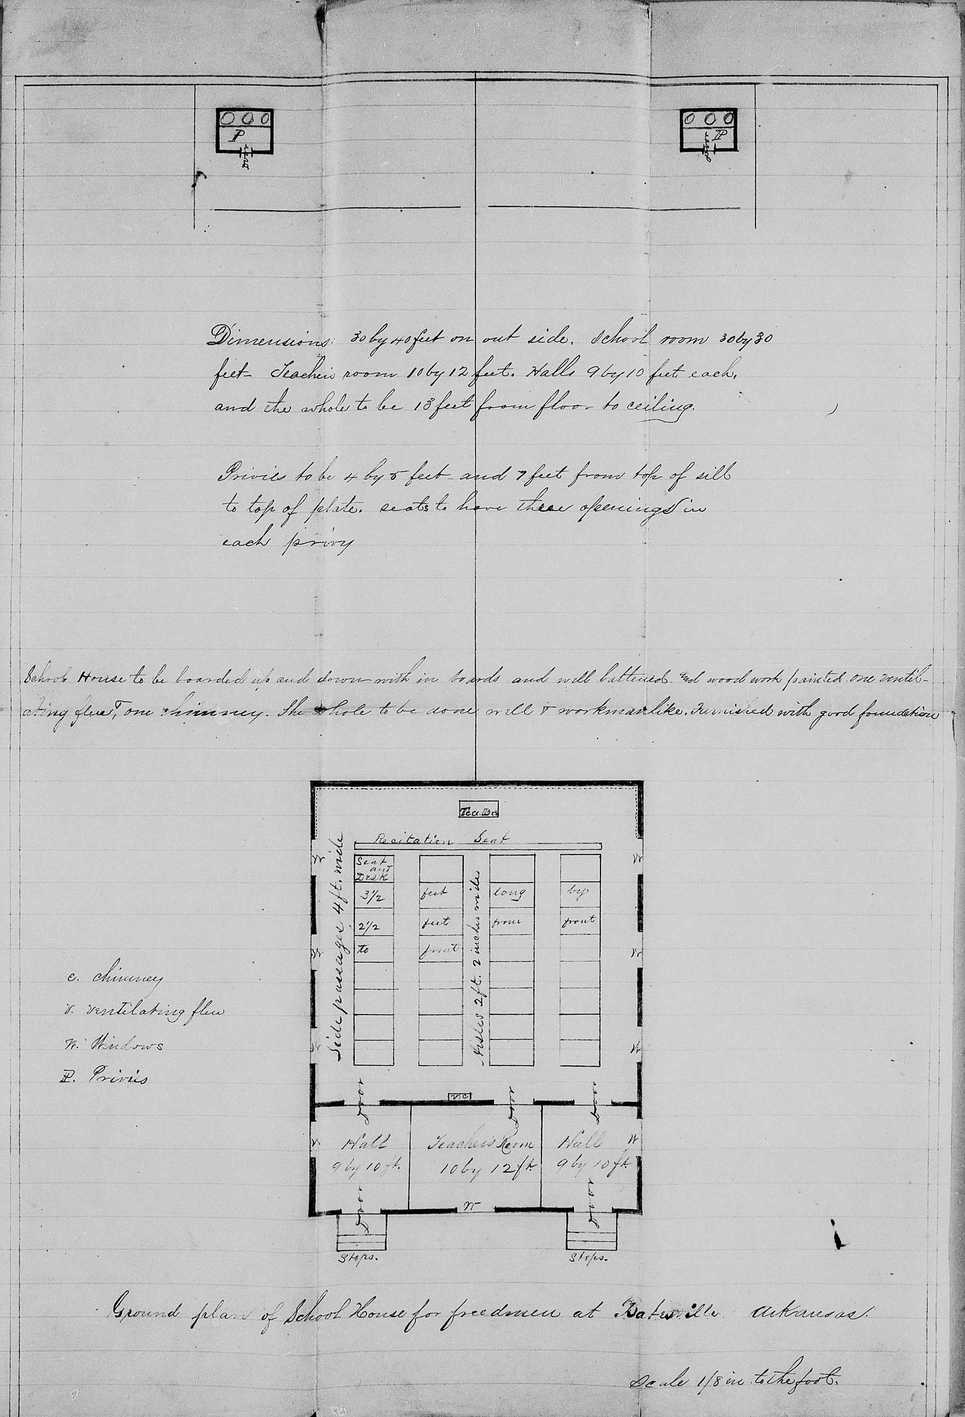 P
Door
P
Door
Dimensions. 30 by 40 feet on out side. School room 30 by 30
feet Teachers room 10 by 12 feet. Halls 9 by 10 feet each.
and the whole to be 13 feet from floor to ceiling.
Privies to be 4 by 5 feet and 7 feet from top of sill
to top of plate. seats to have three openings in
each privy
School House to be boarded up and down with in boards and well battened and wood work painted one ventil-
ating flue, one chimney. The whole to be done well & workmanlike. Furnished with good foundation
Tea De
Recitation Seat
Seat
and
Desk
3 1/2 feet long by
2 1/2 feet from front
to front
Side passages 4 ft. wide
Aisles 2 ft. 2 inches wide
W
W
W
W
W
W
c. chimney
v. ventilating flue
W. Windows
P. Privies
V C
Door
Door
Door
W
Hall
9 by 10 ft.
Teachers Room
10 by 12 ft
Hall
9 by 10 ft
W
Door
W
Door
Steps.
Steps.
Ground plan of School House for freedmen at Batesville Arkansas.
Scale 1/8 in. to the foot.